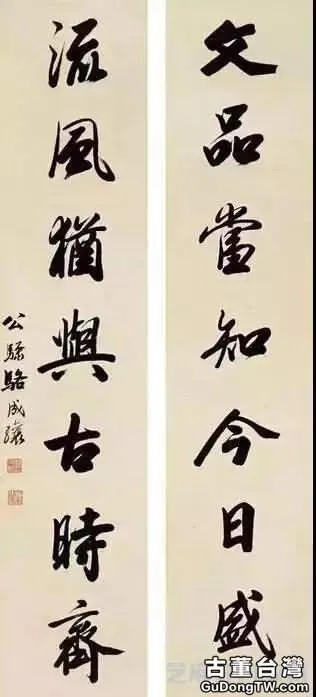 文品當知今日盛
流風猶與古時齊
公驌駱成驤
古董台灣
GuDongTW.com